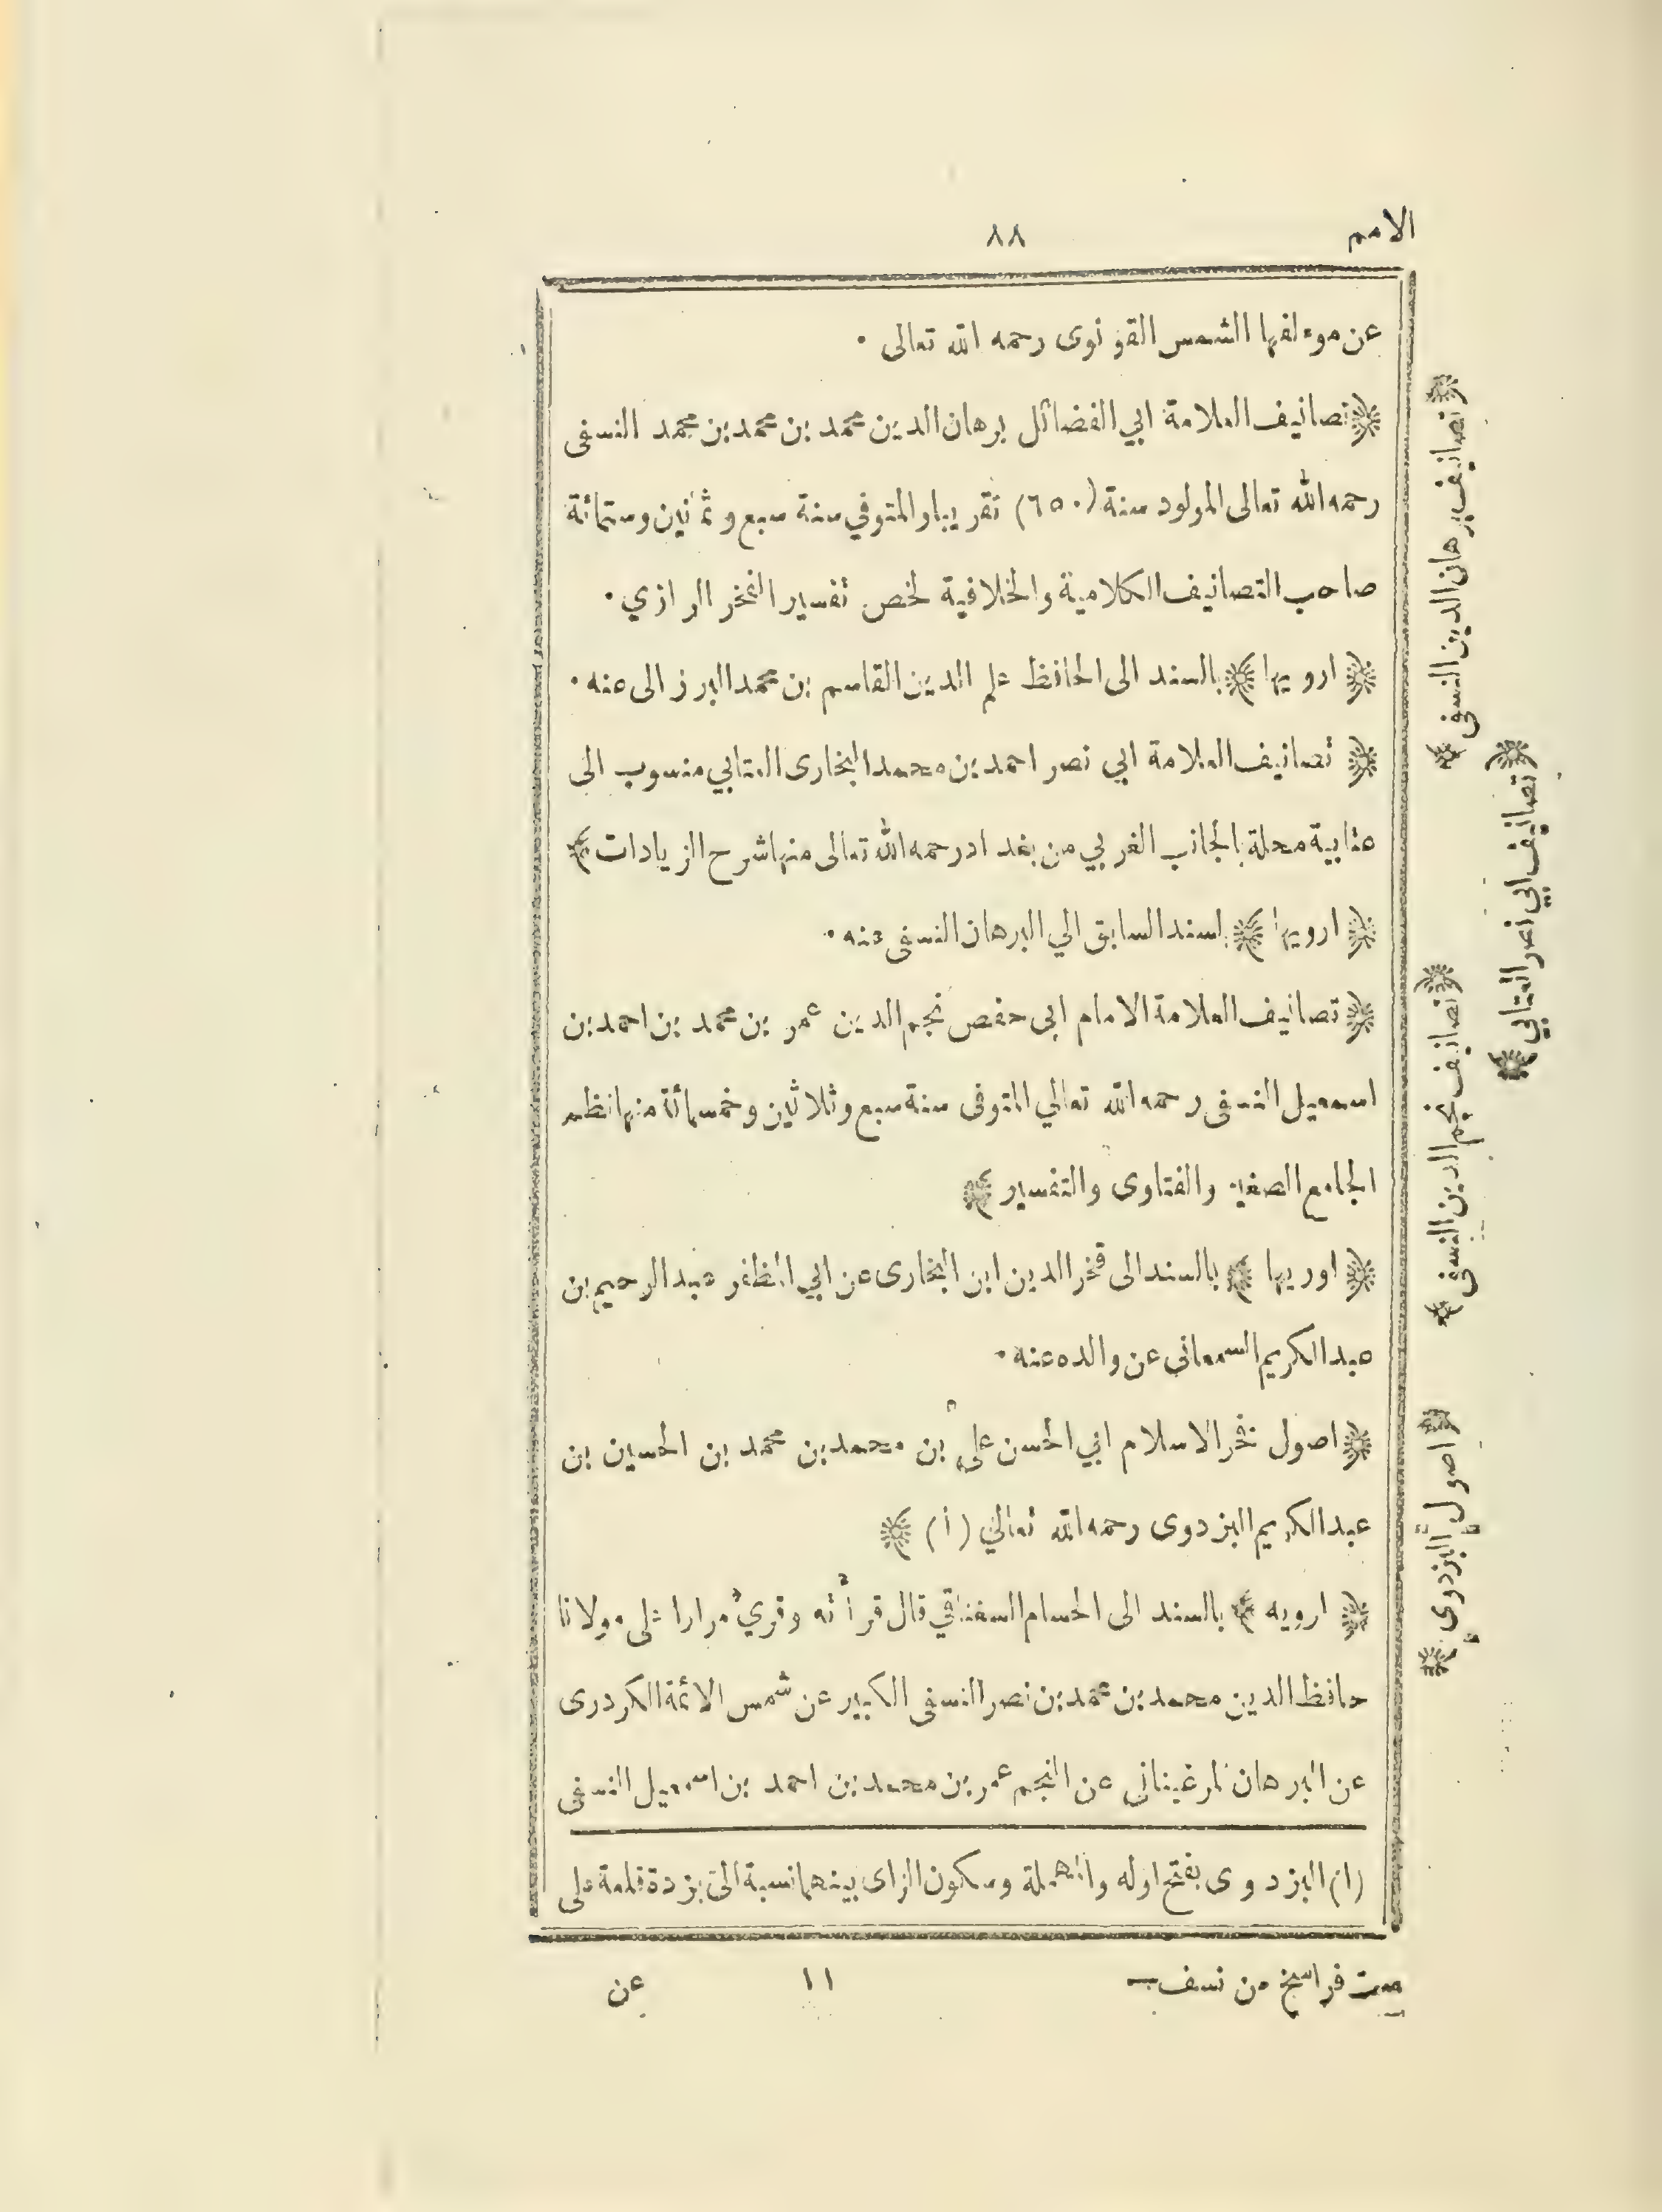 الامم
٨٨
عن موءلفها الشمس القونوى رحمه الله تعالى ٠
﴿ تصانيف العلامة ابي الفضائل برهان الدين محمد بن محمد بن محمد النسفى
رحمه الله تعالى المولود سنة (٦٥٠) تقريبا والمتوفي سنة سبع وثمانين وستمائة
صاحب التصانيف الكلامية والخلافية لخص تفسير الفخر الرازي ٠
﴿ ارويها ﴾ بالسند الى الحافظ علم الدين القاسم بن محمد البرزالى عنه ٠
﴿ تصانيف العلامة ابي نصر احمد بن محمد البخارى العتابي منسوب الى
عتابية محلة بالجانب الغربي من بغداد رحمه الله تعالى منها شرح الزيادات ﴾
﴿ ارويها ﴾ بالسند السابق الي البرهان النسفى عنه ٠
﴿ تصانيف العلامة الامام ابى حفص نجم الدين عمر بن محمد بن احمد بن
اسمعيل النسفى رحمه الله تعالي المتوفى سنة سبع وثلاثين وخمسمائة منها نظم
الجامع الصغير والفتاوى والتفسير ﴾
﴿ اوريها ﴾ بالسند الى فخر الدين ابن البخارى عن ابي المظفر عبد الرحيم بن
عبد الكريم السمعانى عن والده عنه ٠
﴿ اصول فخر الاسلام ابي الحسن علي بن محمد بن محمد بن الحسين بن
عبد الكريم البزدوى رحمه الله تعالي (١) ﴾
﴿ ارويه ﴾ بالسند الى الحسام السغناقي قال قرأته وقريء مرارا على مولانا
حافظ الدين محمد بن محمد بن نصر النسفى الكبير عن شمس الائمة الكردرى
عن البرهان المرغينانى عن النجم عمر بن محمد بن احمد بن اسمعيل النسفى
(١) البزدوى بفتح اوله والمهملة وسكون الزاى بينهما نسبة الى بزدة قلعة على
ست فراسخ من نسف
١١
عن
﴿ تصانيف برهان الدين النسفى ﴾
﴿ تصانيف ابي نصر العتابي ﴾
﴿ تصانيف نجم الدين النسفى ﴾
﴿ اصول البزدوى ﴾